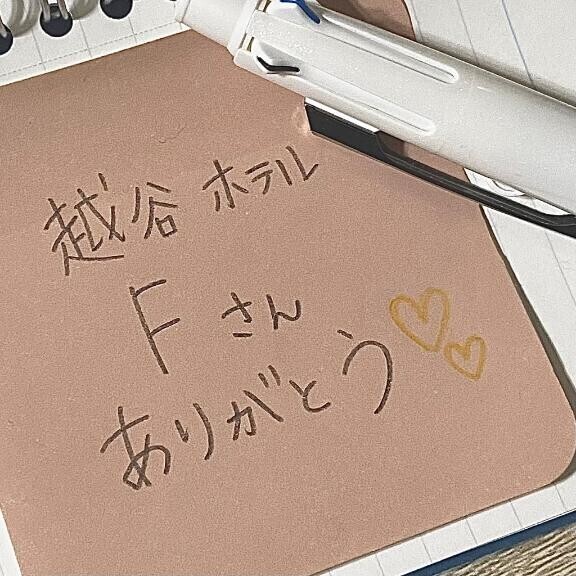 越谷 ホテル
F さん
ありがとう